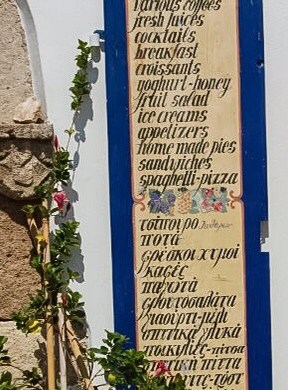 various coffees
fresh juices
cocktails
breakfast
croissants
yoghurt-honey
fruit salad
ice creams
appetizers
home made pies
sandwiches
spaghetti-pizza
τσίπουρο
ποτά
φρέσκοι χυμοί
καφές
παγωτά
φρουτοσαλάτα
γιαούρτι-μέλι
σπιτικά γλυκά
ποικιλίες-πίτσα
σπιτική πίττα